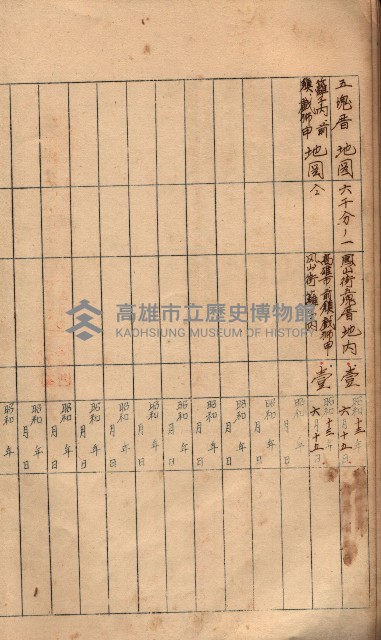 五塊厝 地図 六千分ノ一 鳳山街五塊厝地内 壹 昭和十三年六月十五日
籬子内、前鎮、戯獅甲 地図 仝 高雄市前鎮、戯獅甲 鳳山街籬子内 壹 昭和十三年六月十五日
昭和 年 月 日
昭和 年 月 日
昭和 年 月 日
昭和 年 月 日
昭和 年 月 日
昭和 年 月 日
昭和 年 月 日
昭和 年 月 日
昭和 年 月 日
昭和 年
高雄市立歷史博物館
KAOHSIUNG MUSEUM OF HISTORY